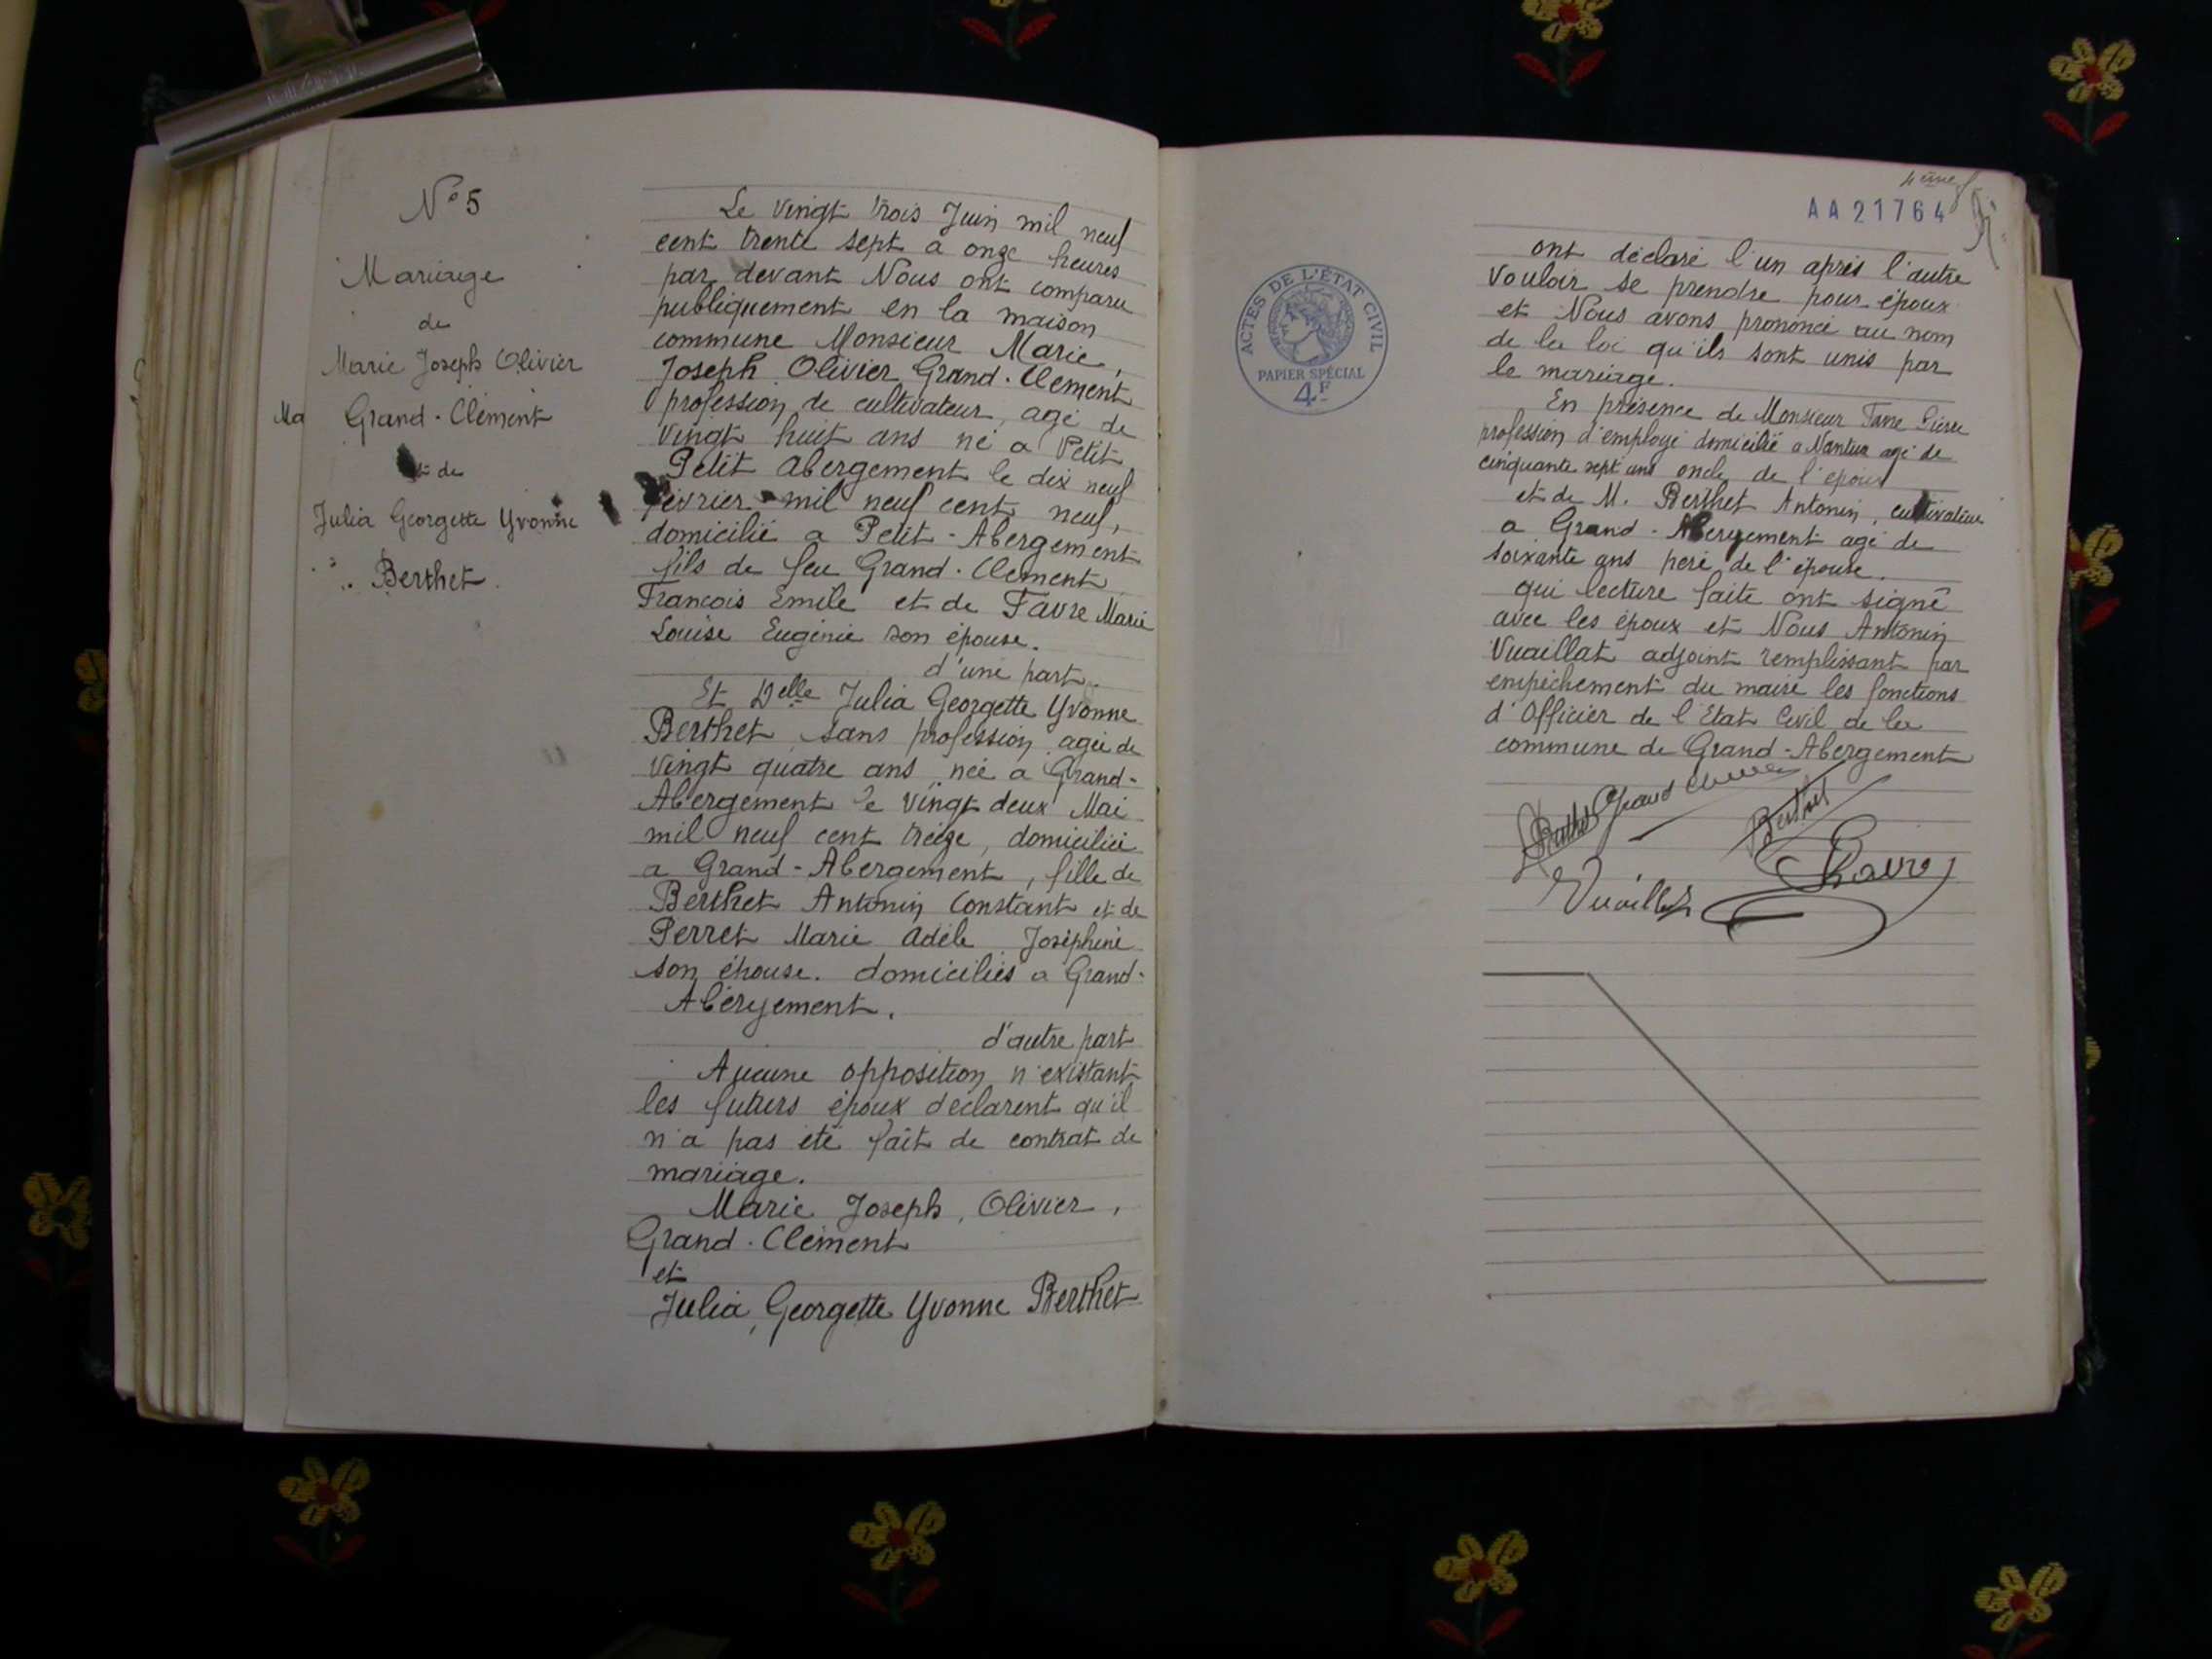 N° 5
Mariage
de
Marie Joseph Olivier
Grand-Clément
et de
Julia Georgette Yvonne
Berthet.
Ma
Le vingt trois Juin mil neuf
cent trente sept a onze heures
par devant Nous ont comparu
publiquement en la maison
commune Monsieur Marie,
Joseph Olivier Grand-Clement
profession de cultivateur, agé de
vingt huit ans né a Petit
Petit Abergement le dix neuf
Février mil neuf cent neuf,
domicilié a Petit-Abergement
fils de feu Grand-Clement
Francois Emile et de Favre Marie
Louise Eugénie son épouse.
d'une part.
Et Delle Julia Georgette Yvonne
Berthet sans profession agée de
vingt quatre ans née a Grand-
Abergement le vingt deux Mai
mil neuf cent treize, domiciliée
a Grand-Abergement, fille de
Berthet Antonin Constant et de
Perret Marie Adèle Joséphine
son épouse. domiciliés a Grand-
Abergement.
d'autre part
Aucune opposition n'existant
les futurs époux déclarent qu'il
n'a pas été fait de contrat de
mariage.
Marie Joseph, Olivier,
Grand-Clément
et
Julia, Georgette Yvonne Berthet
4ème
AA21764
ACTES DE L'ÉTAT CIVIL
PAPIER SPÉCIAL
4F
ont déclaré l'un après l'autre
vouloir se prendre pour époux
et Nous avons prononcé au nom
de la loi qu'ils sont unis par
le mariage.
En présence de Monsieur Favre Pierre
profession d'employé domicilié a Nantua agé de
cinquante sept ans oncle de l'époux
et de M. Berthet Antonin, cultivateur
a Grand-Abergement agé de
soixante ans père de l'épouse.
qui lecture faite ont signé
avec les époux et Nous Antonin
Vuaillat adjoint remplissant par
empêchement du maire les fonctions
d'Officier de l'Etat Civil de la
commune de Grand-Abergement
Berthet Grand Clement
Berthet
Favre
Vuaillat